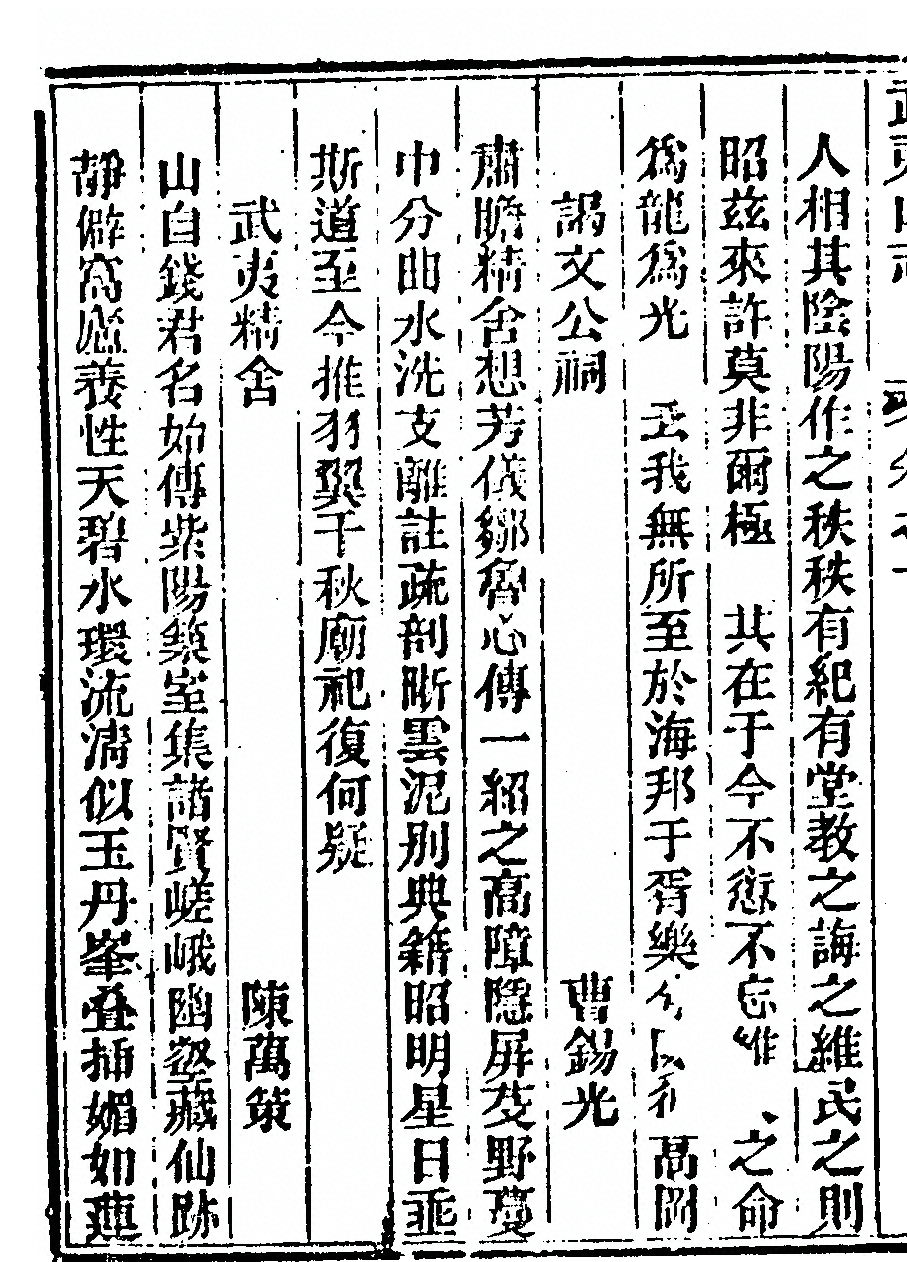 武夷山志
人相其陰陽作之秩秩有紀有堂教之誨之維民之則
昭茲來許莫非爾極　其在于今不愆不忘維　之命
爲龍爲光　於我無所至於海邦于胥樂兮以行　高岡
謁文公祠　曹錫光
肅瞻精舍想芳儀鄒魯心傳一紹之高障隱屏芟野蔓
中分曲水洗支離註疏剖晰雲泥別典籍昭明星日垂
斯道至今推羽翼千秋廟祀復何疑
武夷精舍　陳萬策
山自錢君名始傳紫陽築室集諸賢嵯峨幽壑藏仙跡
靜僻窩窓養性天碧水環流清似玉丹峯叠插媚如蓮